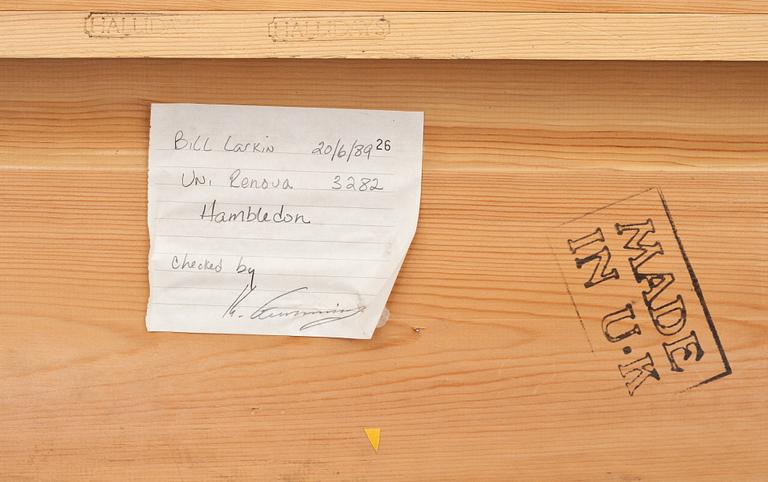 HALLIDAYS HALLIDAYS
Bill Larkin 20/6/89 26
Uni Renova 3282
Hambledon
checked by
K. Cumming
MADE
IN U.K